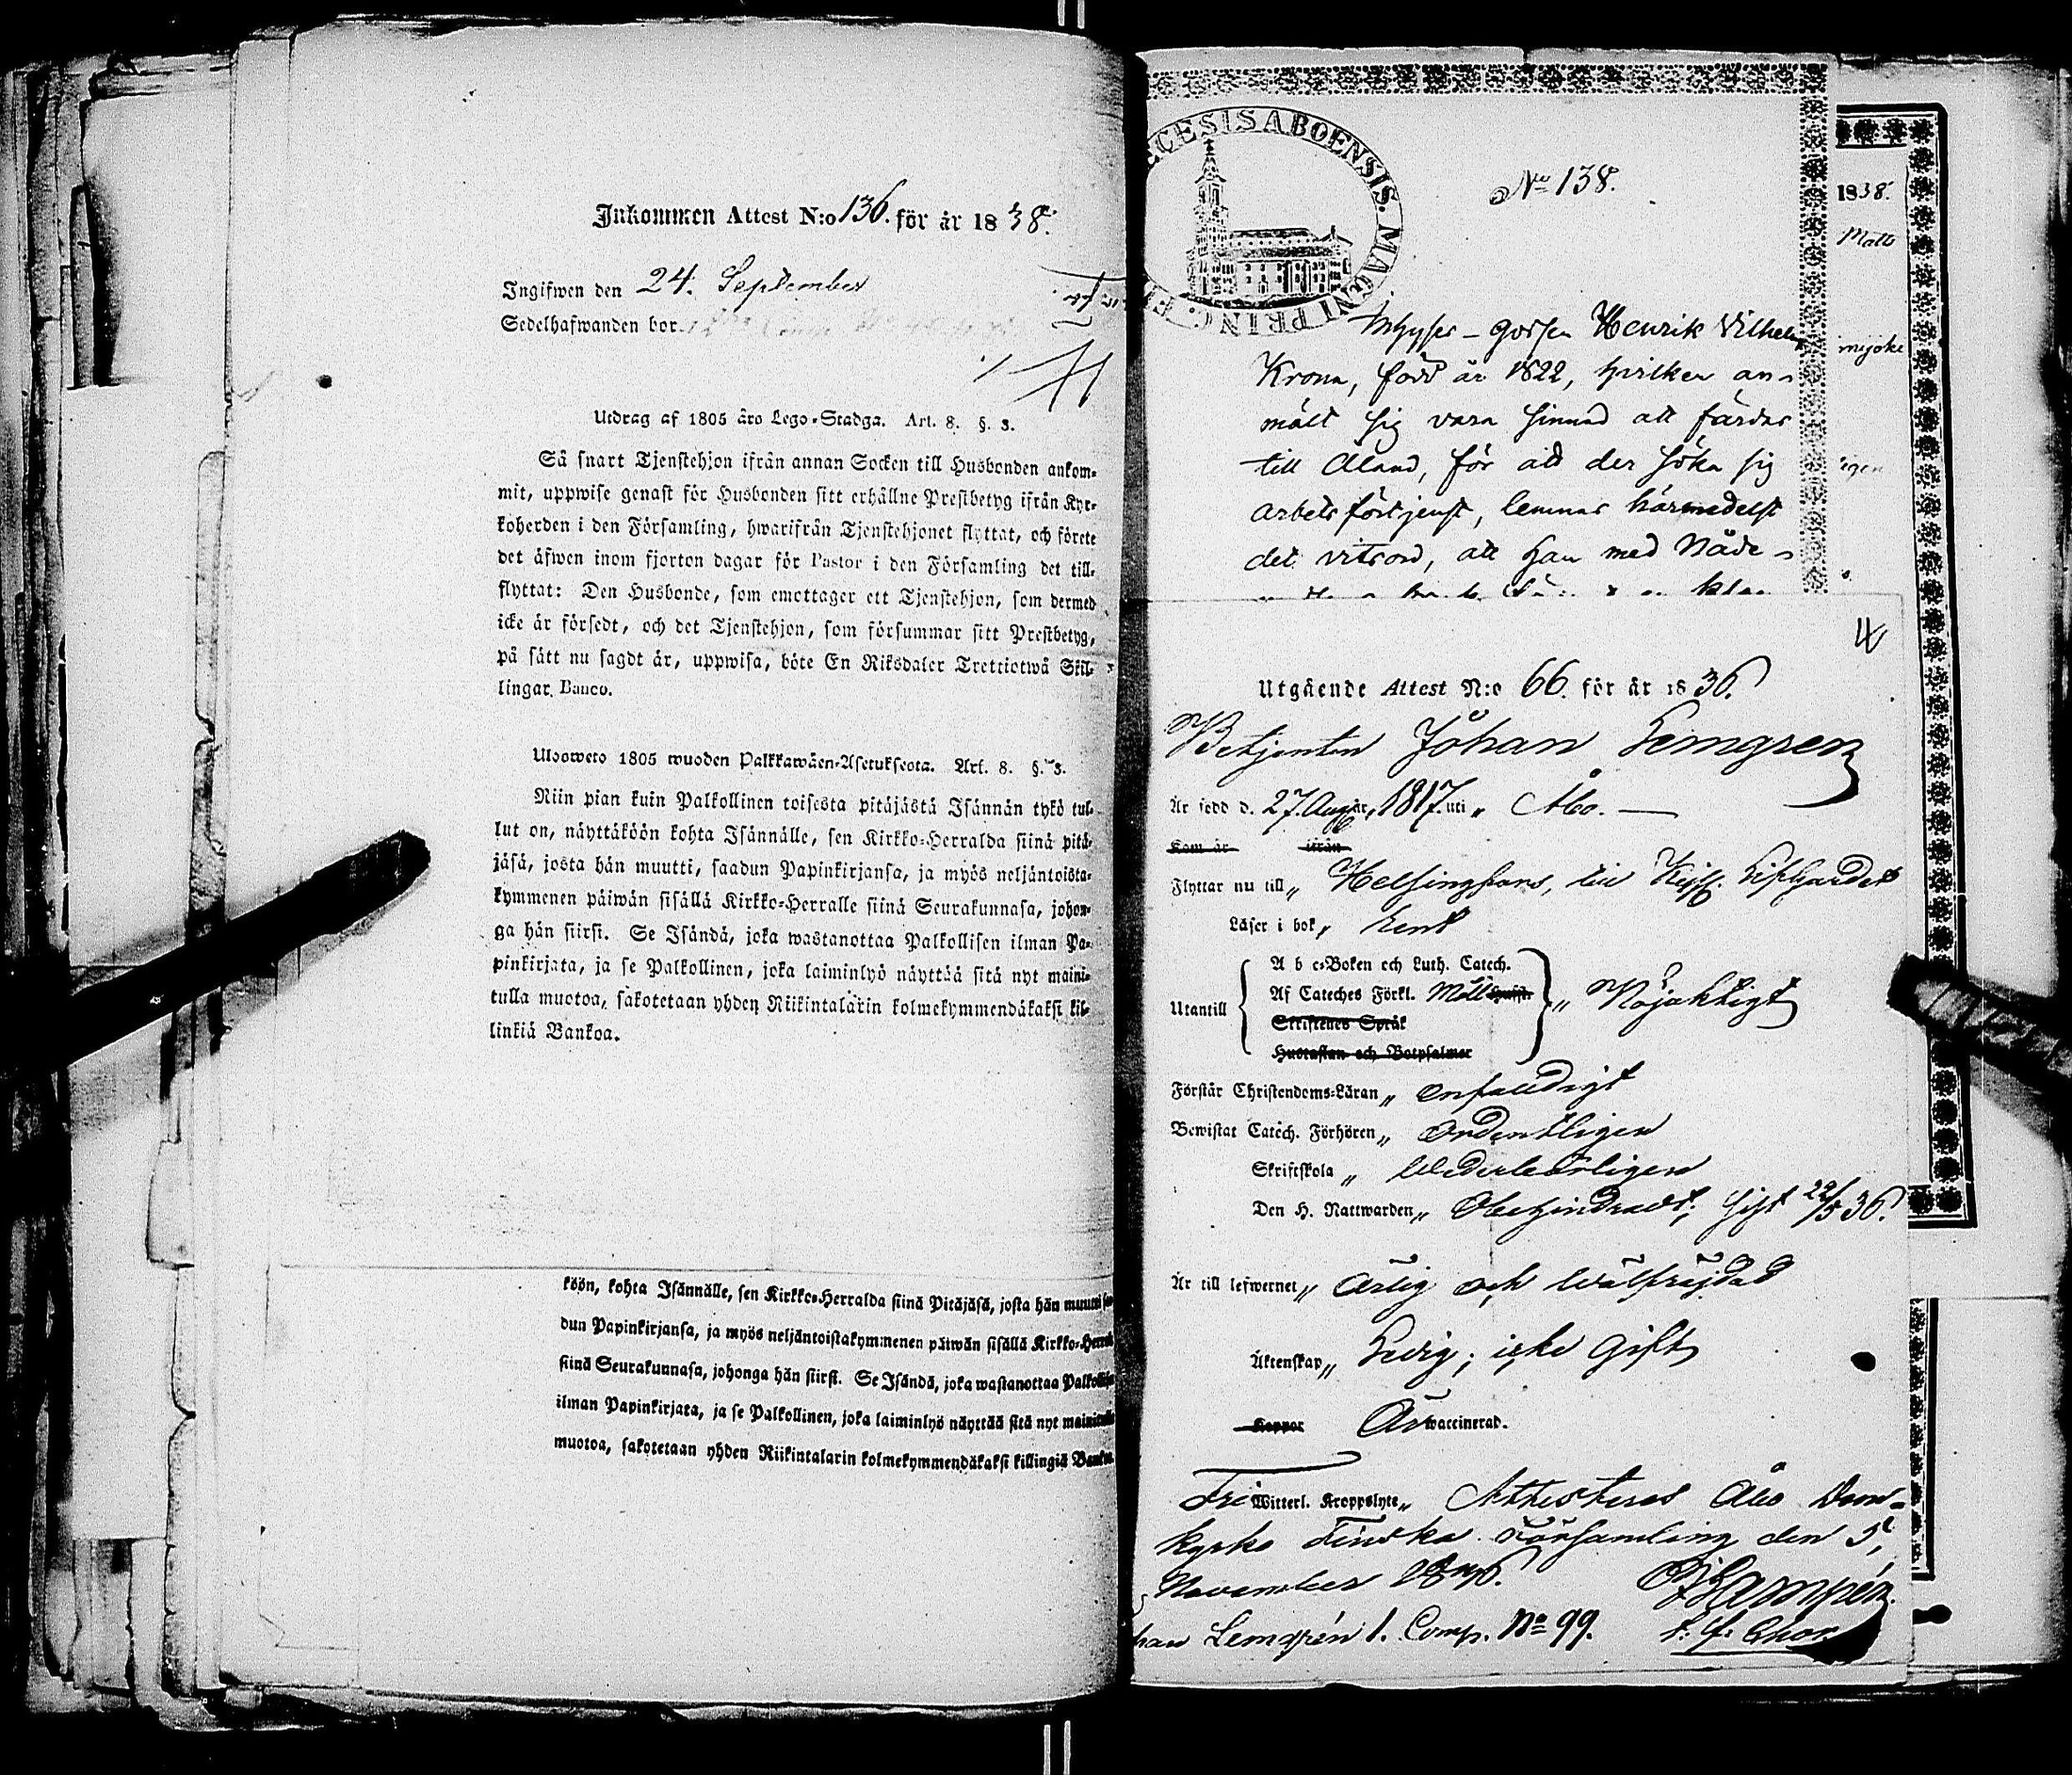 Inkommen Attest N:o 136. för år 1838.
Ingifwen den 24. September
Sedelhafwanden bor
Utdrag af 1805 års Lego-Stadga. Art. 8. §. 3.
Så snart Tjenstehjon ifrån annan Socken till Husbonden ankom-
mit, uppwise genast för Husbonden sitt erhållne Prestbetyg ifrån Kyr-
koherden i den Församling, hwarifrån Tjenstehjonet flyttat, och förete
det äfwen inom fjorton dagar för Pastor i den Församling det till-
flyttat: Den Husbonde, som emottager ett Tjenstehjon, som dermed
icke är försedt, och det Tjenstehjon, som försummar sitt Prestbetyg,
på sätt nu sagdt är, uppwisa, böte En Riksdaler Trettiotwå Skil-
lingar Banco.
Ulosweto 1805 wuoden Palkkawäen-Asetuksesta. Art. 8. §. 3.
Niin pian kuin Palkollinen toisesta pitäjästä Isännän tykö tul-
lut on, näyttäköön kohta Isännälle, sen Kirkko-Herralda siinä pitä-
jäsä, josta hän muutti, saadun Papinkirjansa, ja myös neljäntoista-
kymmenen päiwän sisällä Kirkko-Herralle siinä Seurakunnasa, johon-
ga hän siirsi. Se Isändä, joka wastanottaa Palkollisen ilman Pa-
pinkirjata, ja se Palkollinen, joka laiminlyö näyttää sitä nyt maini-
tulla muotoa, sakotetaan yhden Riikintalarin kolmekymmendäkaksi kil-
linkiä Bankoa.
köön, kohta Isännälle, sen Kirkko-Herralda siinä Pitäjäsä, josta hän muutti saa-
dun Papinkirjansa, ja myös neljäntoistakymmenen päiwän sisällä Kirkko-Herralle
siinä Seurakunnasa, johonga hän siirsi. Se Isändä, joka wastanottaa Palkollisen
ilman Papinkirjata, ja se Palkollinen, joka laiminlyö näyttää sitä nyt mainitulla
muotoa, sakotetaan yhden Riikintalarin kolmekymmendäkaksi killingiä Bankoa
CESIS ABOENSIS. MAGNI PRINC. F
No 138.
Henrik Vilhelm
Krona, född år 1822, hvilken an-
mält sig vara sinnad att färdas
till Åland, för att der söka sig
arbetsförtjenst, lemnas härmedelst
det vitsord, att han med Nåde-
1838.
Matts
Utgående Attest N:o 66. för år 1836.
Betjenten Johan Lemgren
Är född d. 27. Aug. år, 1817. uti „ Åbo.
Kom år ifrån
Flyttar nu till „ Helsingfors, till
Läser i bok „ rent
Utantill
A b c-Boken och Luth. Catech.
Af Cateches Förkl.
Skriftenes Språk
Hustaflan och Botpsalmer
„ Nöjaktigt
Förstår Christendoms-Läran „ enfaldigt
Bewistat Catech. Förhören „ Ordentligen
Skriftskola „ Wederbörligen
Den H. Nattwarden „ Obehindradt; sist 22/5 36.
Är till lefwernet „ Ärlig och wälfräjdad
Äktenskap „ Ledig; icke gift
Koppor Är waccinerad.
Fri Witterl. Kroppslyte „ Attesteras Åbo Dom-
kyrko Finska Församling den 5,
November
Lemgrén 1. Comp. No 99.